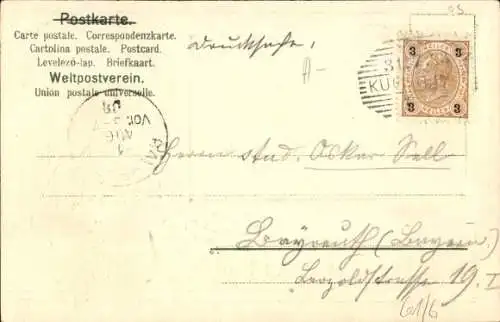 Postkarte.
Carte postale. Correspondenzkarte.
Cartolina postale. Postcard.
Levelező-lap. Briefkaart.
Weltpostverein.
Union postale universelle.
Drucksache.
3 HELLER 3
3 HELLER 3
31
KU
VOR.
AUG
Herrn stud. Oskar Sell
Bayreuth (Bayern)
Leopoldstrasse 19. I
61/6